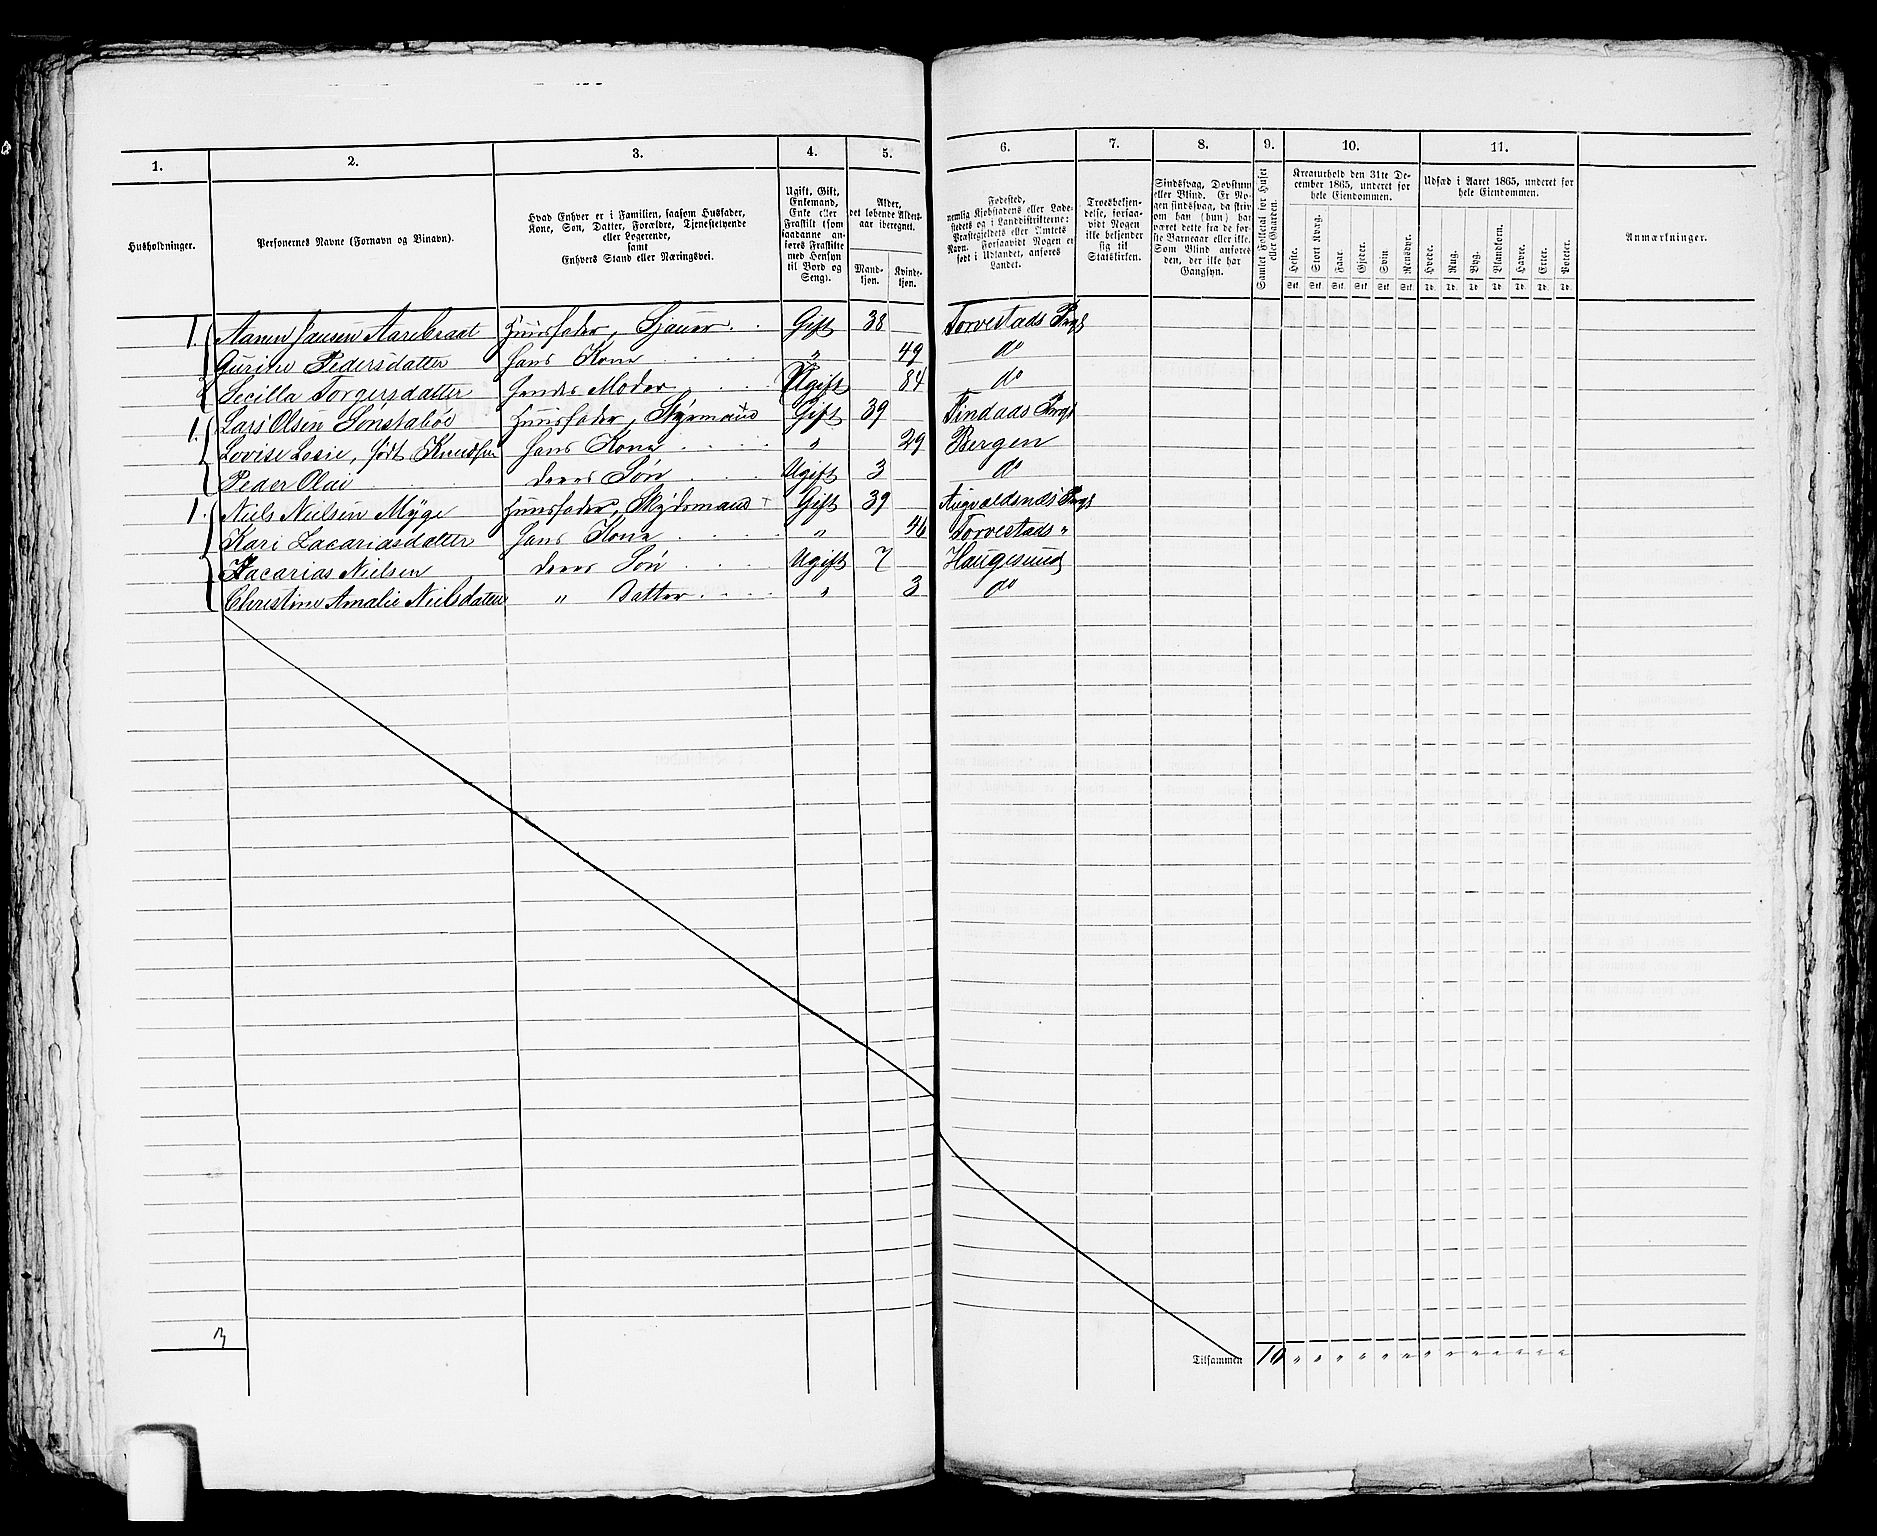 1. 2. 3. 4. 5. 6. 7. 8. 9. 10. 11.
Husholdninger.
Personernes Navne (Fornavn og Binavn).
Hvad Enhver er i Familien, saasom Husfader,
Kone, Søn, Datter, Forældre, Tjenestetyende
eller Logerende,
samt
Enhvers Stand eller Næringsvei.
Ugift, Gift,
Enkemand,
Enke eller
Fraskilt (som
saadanne an-
føres Fraskilte
med Hensyn
til Bord og
Seng).
Alder,
det løbende Alders-
aar iberegnet.
Mand-
kjøn.
Kvinde-
kjøn.
Fødested,
nemlig Kjøbstadens eller Lade-
stedets og i Landdistrikterne:
Præstegjeldets eller Amtets
Navn. Forsaavidt Nogen er
født i Udlandet, anføres
Landet.
Troesbekjen-
delse, forsaa-
vidt Nogen
ikke bekjender
sig til
Statskirken.
Sindssvag, Døvstum
eller Blind. Er No-
gen sindssvag, da skriv
om han (hun) har
været dette fra de før-
ste Barneaar eller ikke.
Som Blind anføres
den, der ikke har
Gangsyn.
Samlet Folketal for Huset
eller Gaarden.
Kreaturhold den 31te De-
cember 1865, underet for
hele Eiendommen.
Heste. Stort Kvæg. Faar Gjeder. Svin Rensdyr.
Stk. Stk. Stk. Stk. Stk. Stk.
Udsæd i Aaret 1865, underet for
hele Eiendommen.
Hvede. Rug. Byg. Blandkorn. Havre. Erter. Poteter.
Td. Td. Td. Td. Td. Td. Td.
Anmærkninger.
1. Aanen Jansen Aarebraat Huusfader, Sjauer Gift 38 Torvestads Prgd
Gurine Pedersdatter Hans Kone " 49 do
Secilla Torgersdatter Hendes Moder Ugift 84 do
1. Lars Olsen Sønstabøe Huusfader, Styrmand Gift 39 Findaas Prgd
Lovise Losie, født Knudsen Hans Kone " 29 Bergen
Peder Olai deres Søn Ugift 3 do
1. Niels Nielsen Myge Huusfader, Skydsmand Gift 39 Augvaldsnæs Prgd
Kari Zacariasdatter Hans Kone " 46 Torvestads "
Zacarias Nielsen deres Søn Ugift 7 Haugesund
Christine Amalie Nielsdatter " Datter " 3 do
3
Tilsammen 10 " " " " " " " " " " " " "